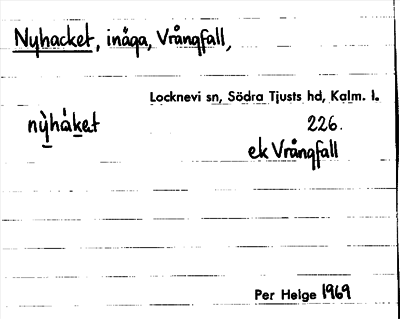 Nyhacket, inäga, Vrångfall,
Locknevi sn, Södra Tjusts hd, Kalm. l.
nỳháket 226.
ek Vrångfall
Per Helge 1969